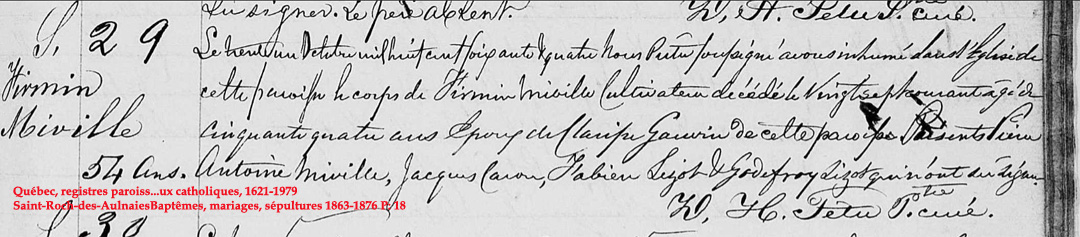 su signer. Le père absent.
D. H. Têtu Ptre curé.
S. 29
Firmin
Miville
54 Ans.
Le trente un Octobre mil huit cent soixante & quatre Nous Prêtre soussigné avons inhumé dans l'Eglise de
cette paroisse le corps de Firmin Miville Cultivateur décédé le Vingt sept courant agé de
cinquante quatre ans Epoux de Clarisse Gauvin de cette paroisse Présents Pierre
Antoine Miville, Jacques Caron, Fabien Lizot & Godefroy Lizot qui n'ont su signer
D. H. Têtu Ptre curé.
Québec, registres paroiss...ux catholiques, 1621-1979
Saint-Roch-des-AulnaiesBaptêmes, mariages, sépultures 1863-1876 P. 18
S. 30